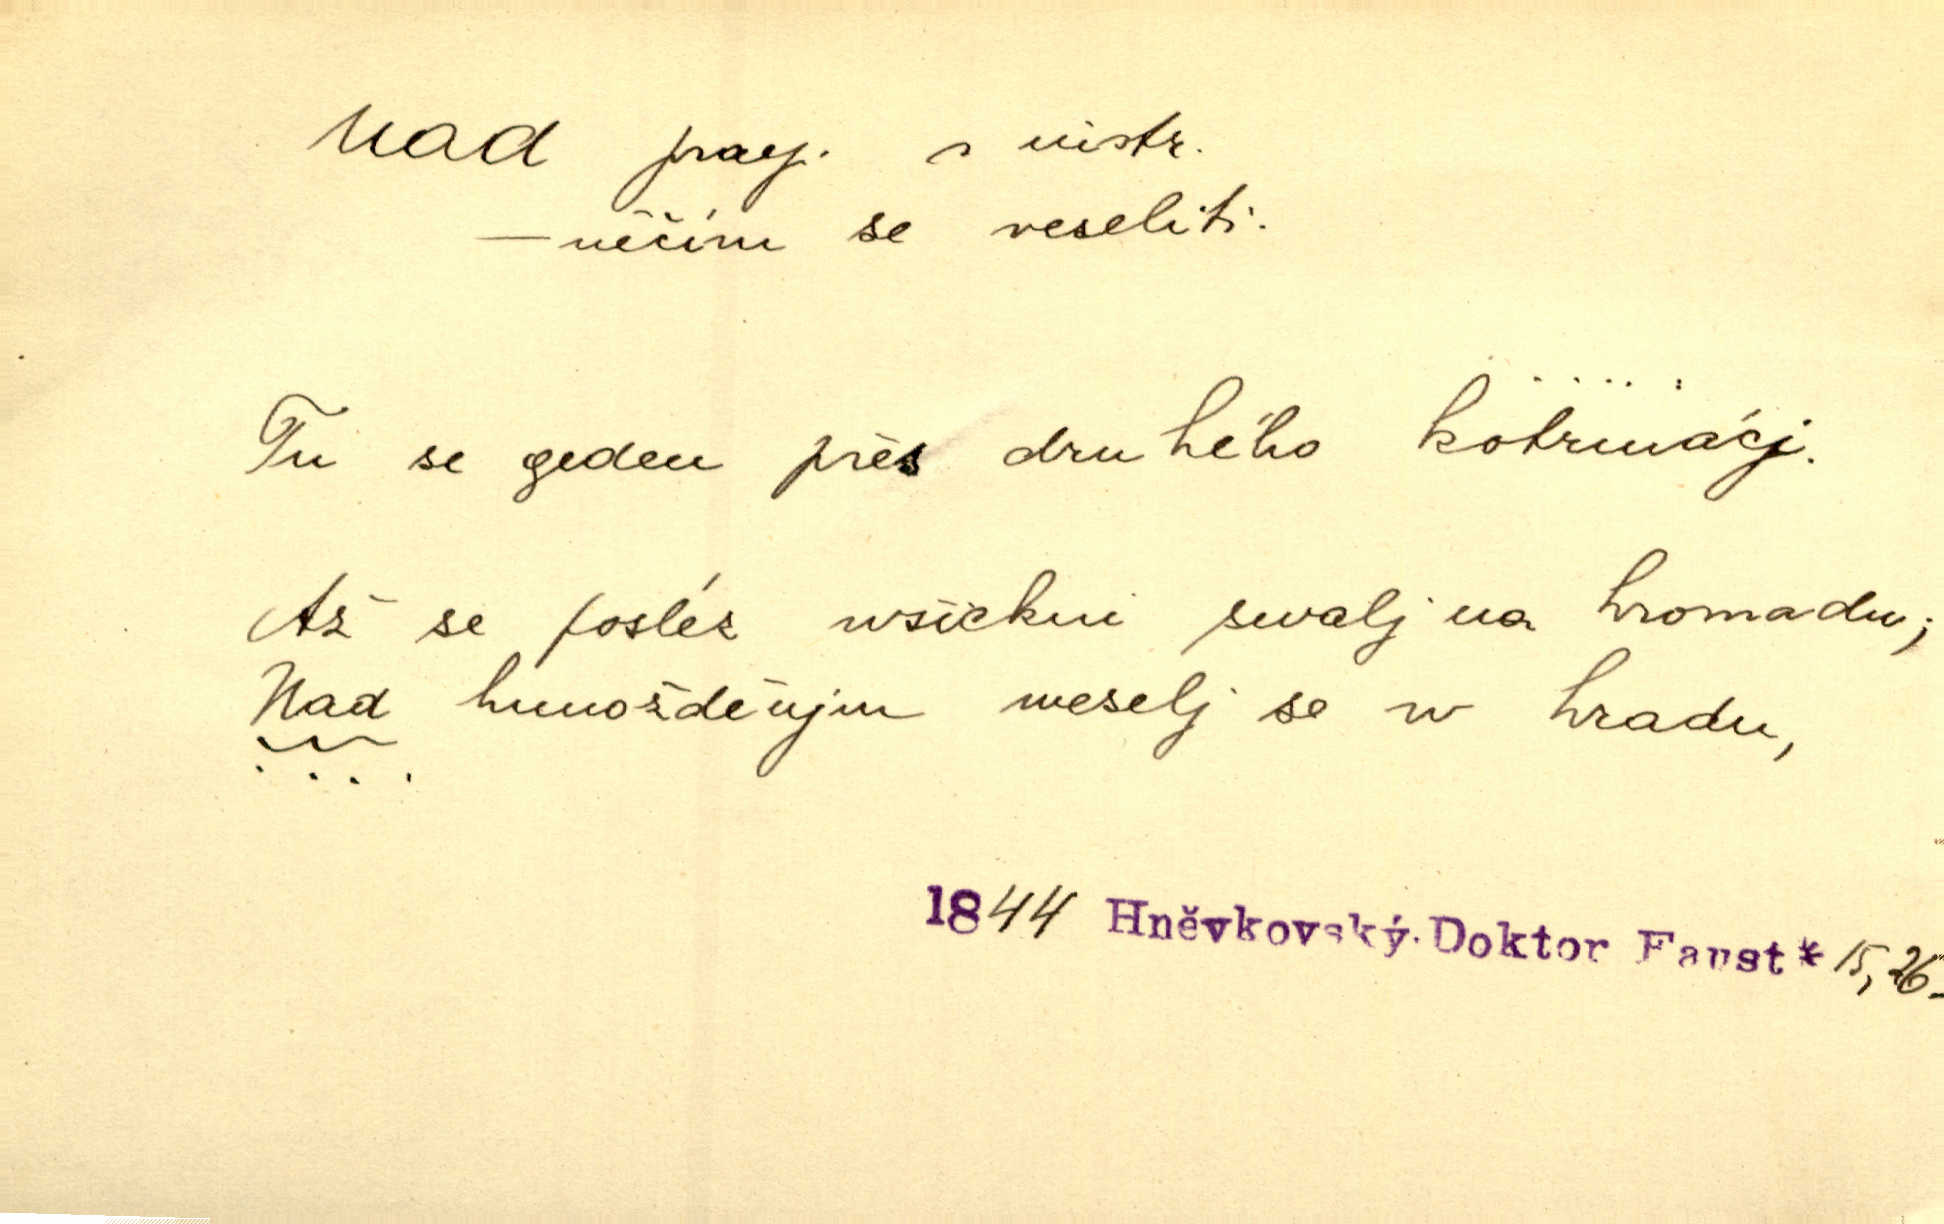 nad praep. s instr.
— něčím se veseliti.
Tu se geden přes druhého kotrmácj.
Až se posléz wšickni swalj na hromadu;
Nad hmožděnjm weselj se w hradu,
1844 Hněvkovský. Doktor Faust * 15, 26